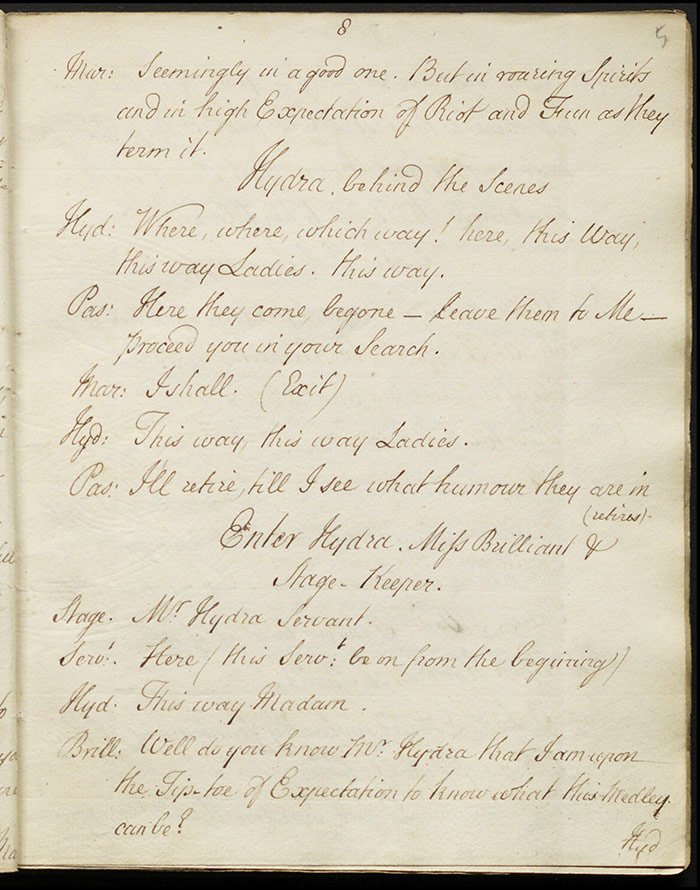 8
5
Mar: Seemingly in a good one. But in roaring Spirits
and in high Expectation of Riot and Fun as they
term it.
Hydra behind the Scenes
Hyd: Where, where, which way! here, this Way,
this way Ladies. this way.
Pas: Here they come, begone — leave them to Me —
proceed you in your Search.
Mar: I shall. (Exit)
Hyd: This way, this way Ladies.
Pas: I'll retire, till I see what humour they are in
(retires).
Enter Hydra. Miss Brilliant &
Stage-Keeper.
Stage. Mr Hydra Servant.
Servt. Here (this Servt: be on from the begining)
Hyd: This way Madam.
Brill: Well do you know Mr Hydra that I am upon
the Tip-toe of Expectation to know what this Medley
can be?
Hyd